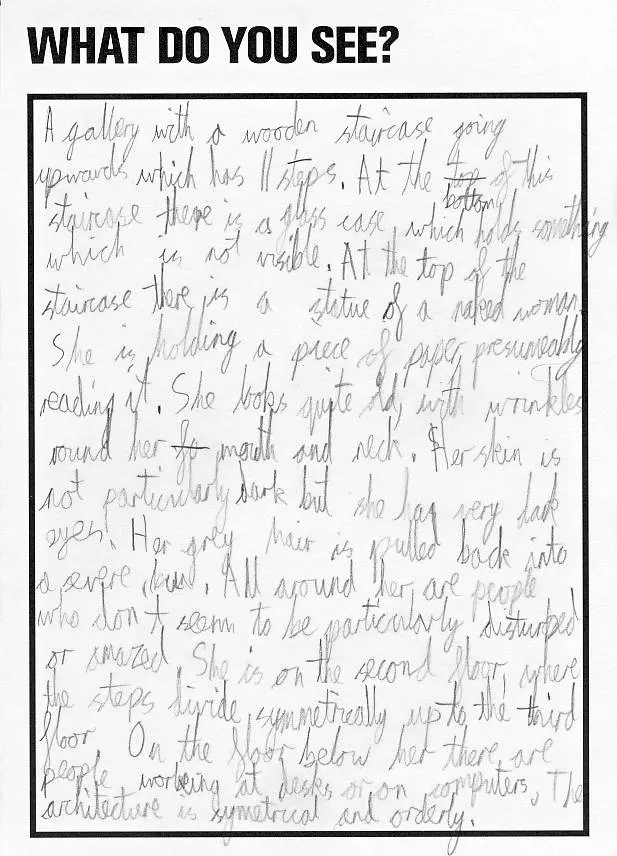 WHAT DO YOU SEE?
A gallery with a wooden staircase going
upwards which has 11 steps. At the top bottom of this
staircase there is a glass case, which holds something
which is not visible. At the top of the
staircase there is a statue of a naked woman.
She is holding a piece of paper, presumeably
reading it. She looks quite old, with wrinkles
round her fa mouth and neck. Her skin is
not particularly dark but she has very dark
eyes. Her grey hair is pulled back into
a severe bun. All around her are people
who don't seem to be particularly disturbed
or amazed. She is on the second floor, where
the steps divide symmetrically up to the third
floor. On the floor below her there are
people working at desks or on computers. The
architecture is symetrical and orderly.